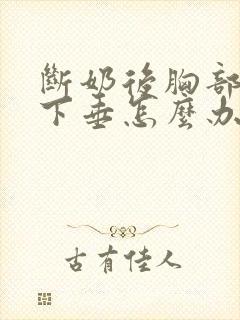 斷奶後胸部
下垂怎麼办
古有佳人